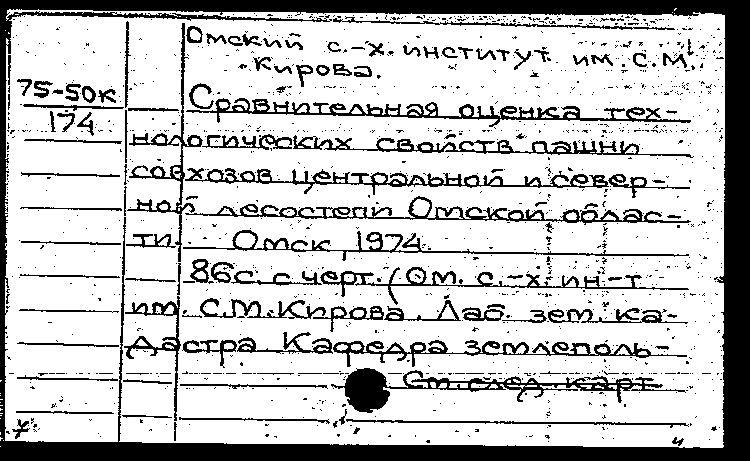 Омский с.-х. институт им. С.М.
Кирова.
75-50к
174
Сравнительная оценка тех-
нологических свойств пашни
совхозов центральной и север-
ной лесостепи Омской облас-
ти. Омск, 1974.
86с. с черт. (Ом. с.-х. ин-т
им. С.М.Кирова. Лаб. зем. ка-
дастра Кафедра землеполь-
См. след. карт